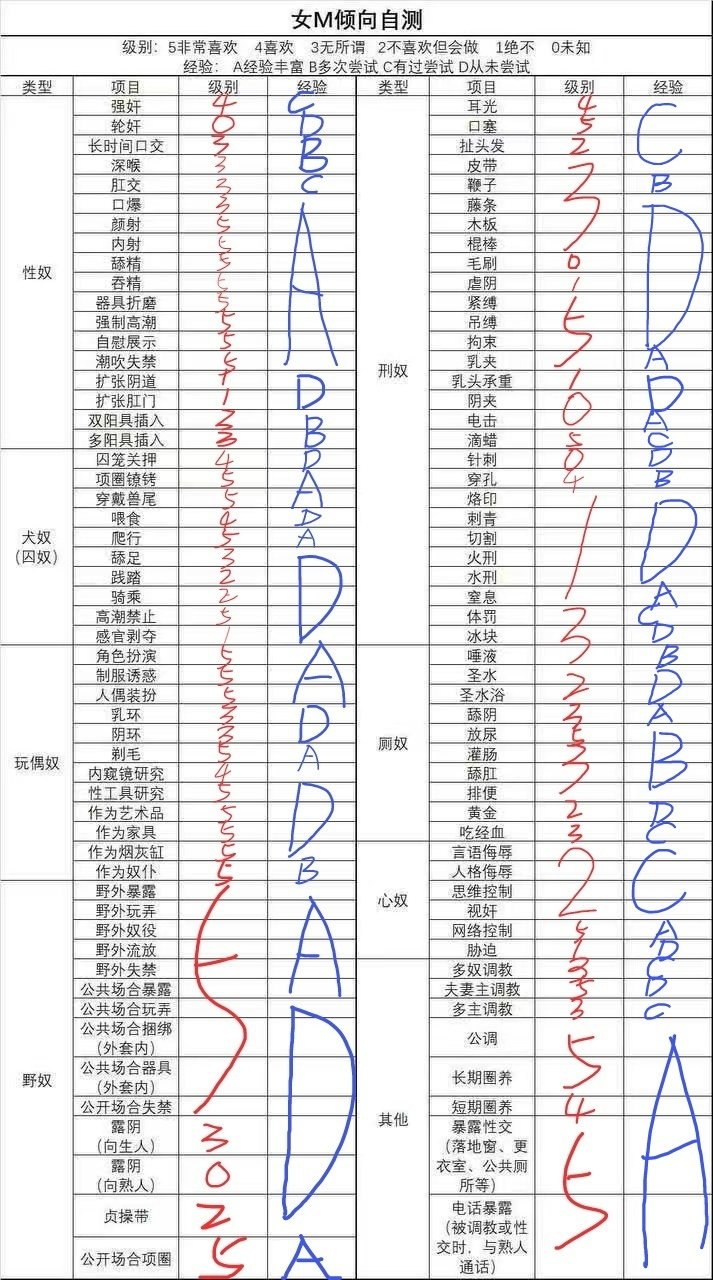 女M倾向自测
级别：5非常喜欢 4喜欢 3无所谓 2不喜欢但会做 1绝不 0未知
经验： A经验丰富 B多次尝试 C有过尝试 D从未尝试
类型 项目 级别 经验
性奴
强奸 4 C
轮奸 0 D
长时间口交 3 B
深喉 3 B
肛交 3 C
口爆 3
颜射 5
内射 5
舔精 5
吞精 5 A
器具折磨 5
强制高潮 5
自慰展示 5
潮吹失禁 5
扩张阴道 1
扩张肛门 1 D
双阳具插入 2
多阳具插入 3 B
犬奴
（囚奴）
囚笼关押 4 D
项圈镣铐 5
穿戴兽尾 5 A
喂食 4 D
爬行 5 A
舔足 3
践踏 2
骑乘 2 D
高潮禁止 5
感官剥夺 1
玩偶奴
角色扮演 5
制服诱惑 5 A
人偶装扮 5
乳环 3
阴环 3 D
剃毛 5 A
内窥镜研究 4
性工具研究 5
作为艺术品 5 D
作为家具 5
作为烟灰缸 5
作为奴仆 5 B
野奴
野外暴露
野外玩弄
野外奴役
野外流放 A
野外失禁 5
公共场合暴露
公共场合玩弄
公共场合捆绑
（外套内）
公共场合器具
（外套内） D
公开场合失禁
露阴
（向生人） 3
露阴
（向熟人） 0
贞操带 2
公开场合项圈 5 A
类型 项目 级别 经验
刑奴
耳光 4
口塞 5 C
扯头发 2
皮带
鞭子 3 B
藤条
木板
棍棒
毛刷 0 D
虐阴 1
紧缚
吊缚 5
拘束
乳夹 A
乳头承重 1 D
阴夹 0
电击 A
滴蜡 5 C
针刺 0 D
穿孔 4 B
烙印
刺青
切割 1 D
火刑
水刑
窒息 A
体罚 3 C
冰块 D
厕奴
唾液 B
圣水 2 D
圣水浴
舔阴 3 A
放尿 5
灌肠 3 B
舔肛
排便
黄金 2 D
吃经血 3 C
心奴
言语侮辱
人格侮辱 2 C
思维控制
视奸
网络控制 5 A
胁迫 D
其他
多奴调教 3 C
夫妻主调教 5 B
多主调教 3 C
公调 5
长期圈养
短期圈养 4
暴露性交
（落地窗、更
衣室、公共厕
所等） 5 A
电话暴露
（被调教或性
交时，与熟人
通话）